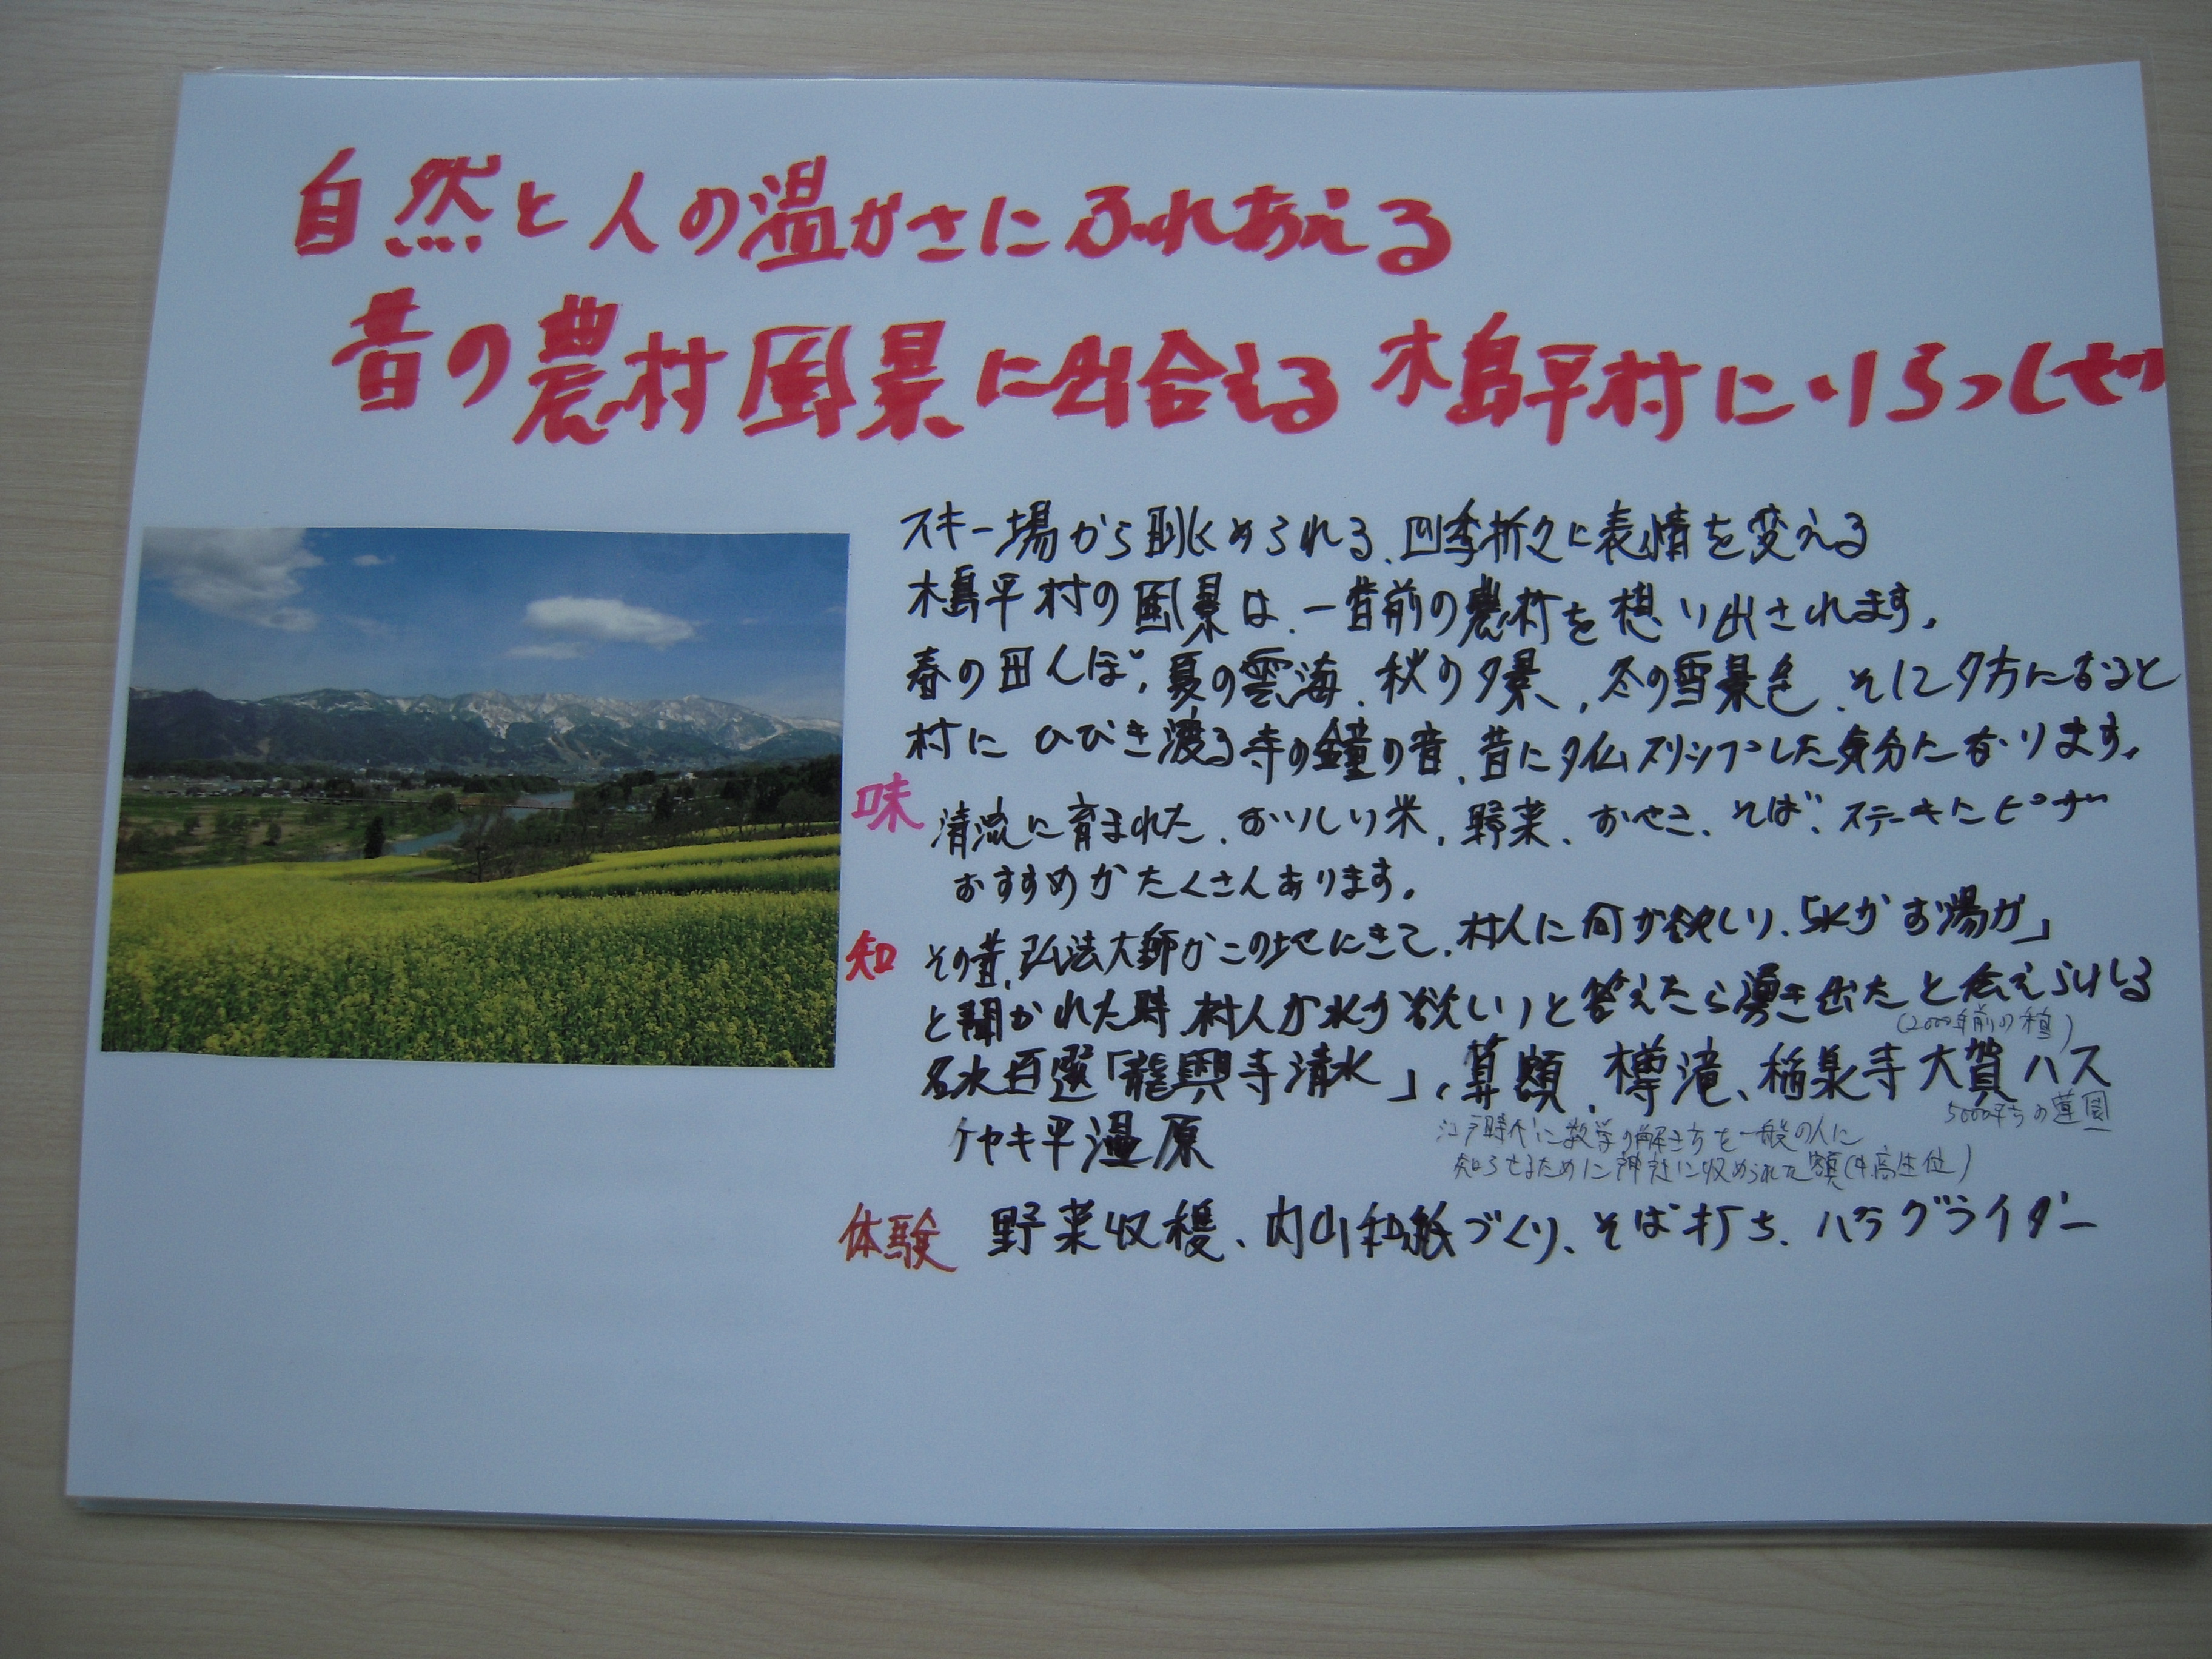 自然と人の温かさにふれあえる
昔の農村風景に出合える 木島平村にいらっしゃい
スキー場から眺められる、四季折々に表情を変える
木島平村の風景は、一昔前の農村を想い出されます。
春の田んぼ、夏の雲海、秋の夕景、冬の雪景色、そして夕方になると
村に ひびき渡る寺の鐘の音、昔にタイムスリップした気分になります。
味 清流に育まれた、おいしい米、野菜、おやき、そば、ステーキにピザ
おすすめがたくさんあります。
知 その昔、弘法大師がこの地にきて、村人に何が欲しい、「水かお湯か」
と聞かれた時、村人が水が欲しいと答えたら湧き出たと伝えられる
(2000年前の種)
名水百選「龍興寺清水」、算額、樽滝、稲泉寺大賀ハス
5000平方の蓮園
ケヤキ平湿原
江戸時代に数学の解き方を一般の人に
知らせるために神社に収められた額(中高生位)
体験 野菜収穫、内山和紙づくり、そば打ち、パラグライダー